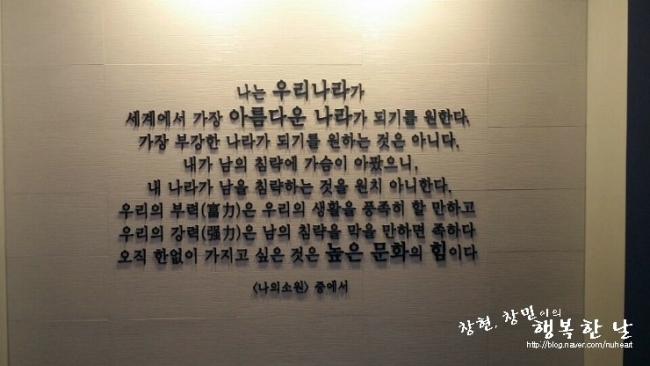 나는 우리나라가
세계에서 가장 아름다운 나라가 되기를 원한다.
가장 부강한 나라가 되기를 원하는 것은 아니다.
내가 남의 침략에 가슴이 아팠으니,
내 나라가 남을 침략하는 것을 원치 아니한다.
우리의 부력(富力)은 우리의 생활을 풍족히 할 만하고
우리의 강력(强力)은 남의 침략을 막을 만하면 족하다
오직 한없이 가지고 싶은 것은 높은 문화의 힘이다
<나의소원> 중에서
창현, 창민이의
행복한 날
http://blog.naver.com/nuheart